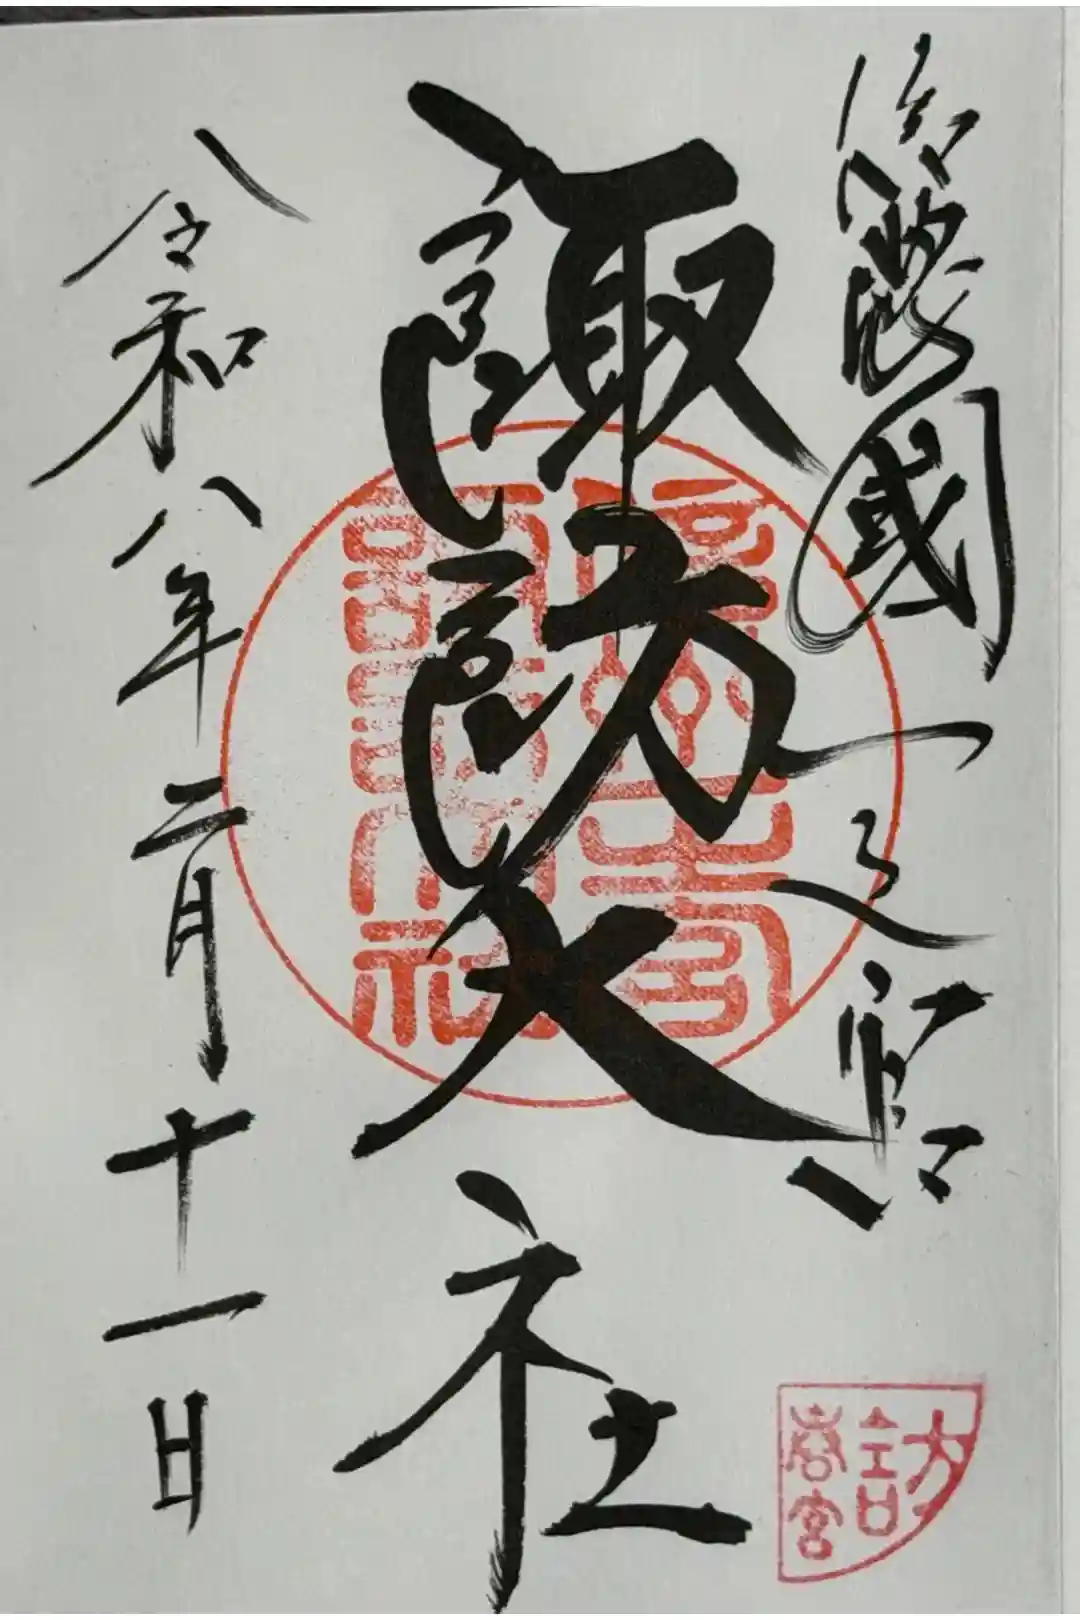 信濃國一之宮
諏訪大社
令和八年二月十一日
諏訪大社
訪
春宮